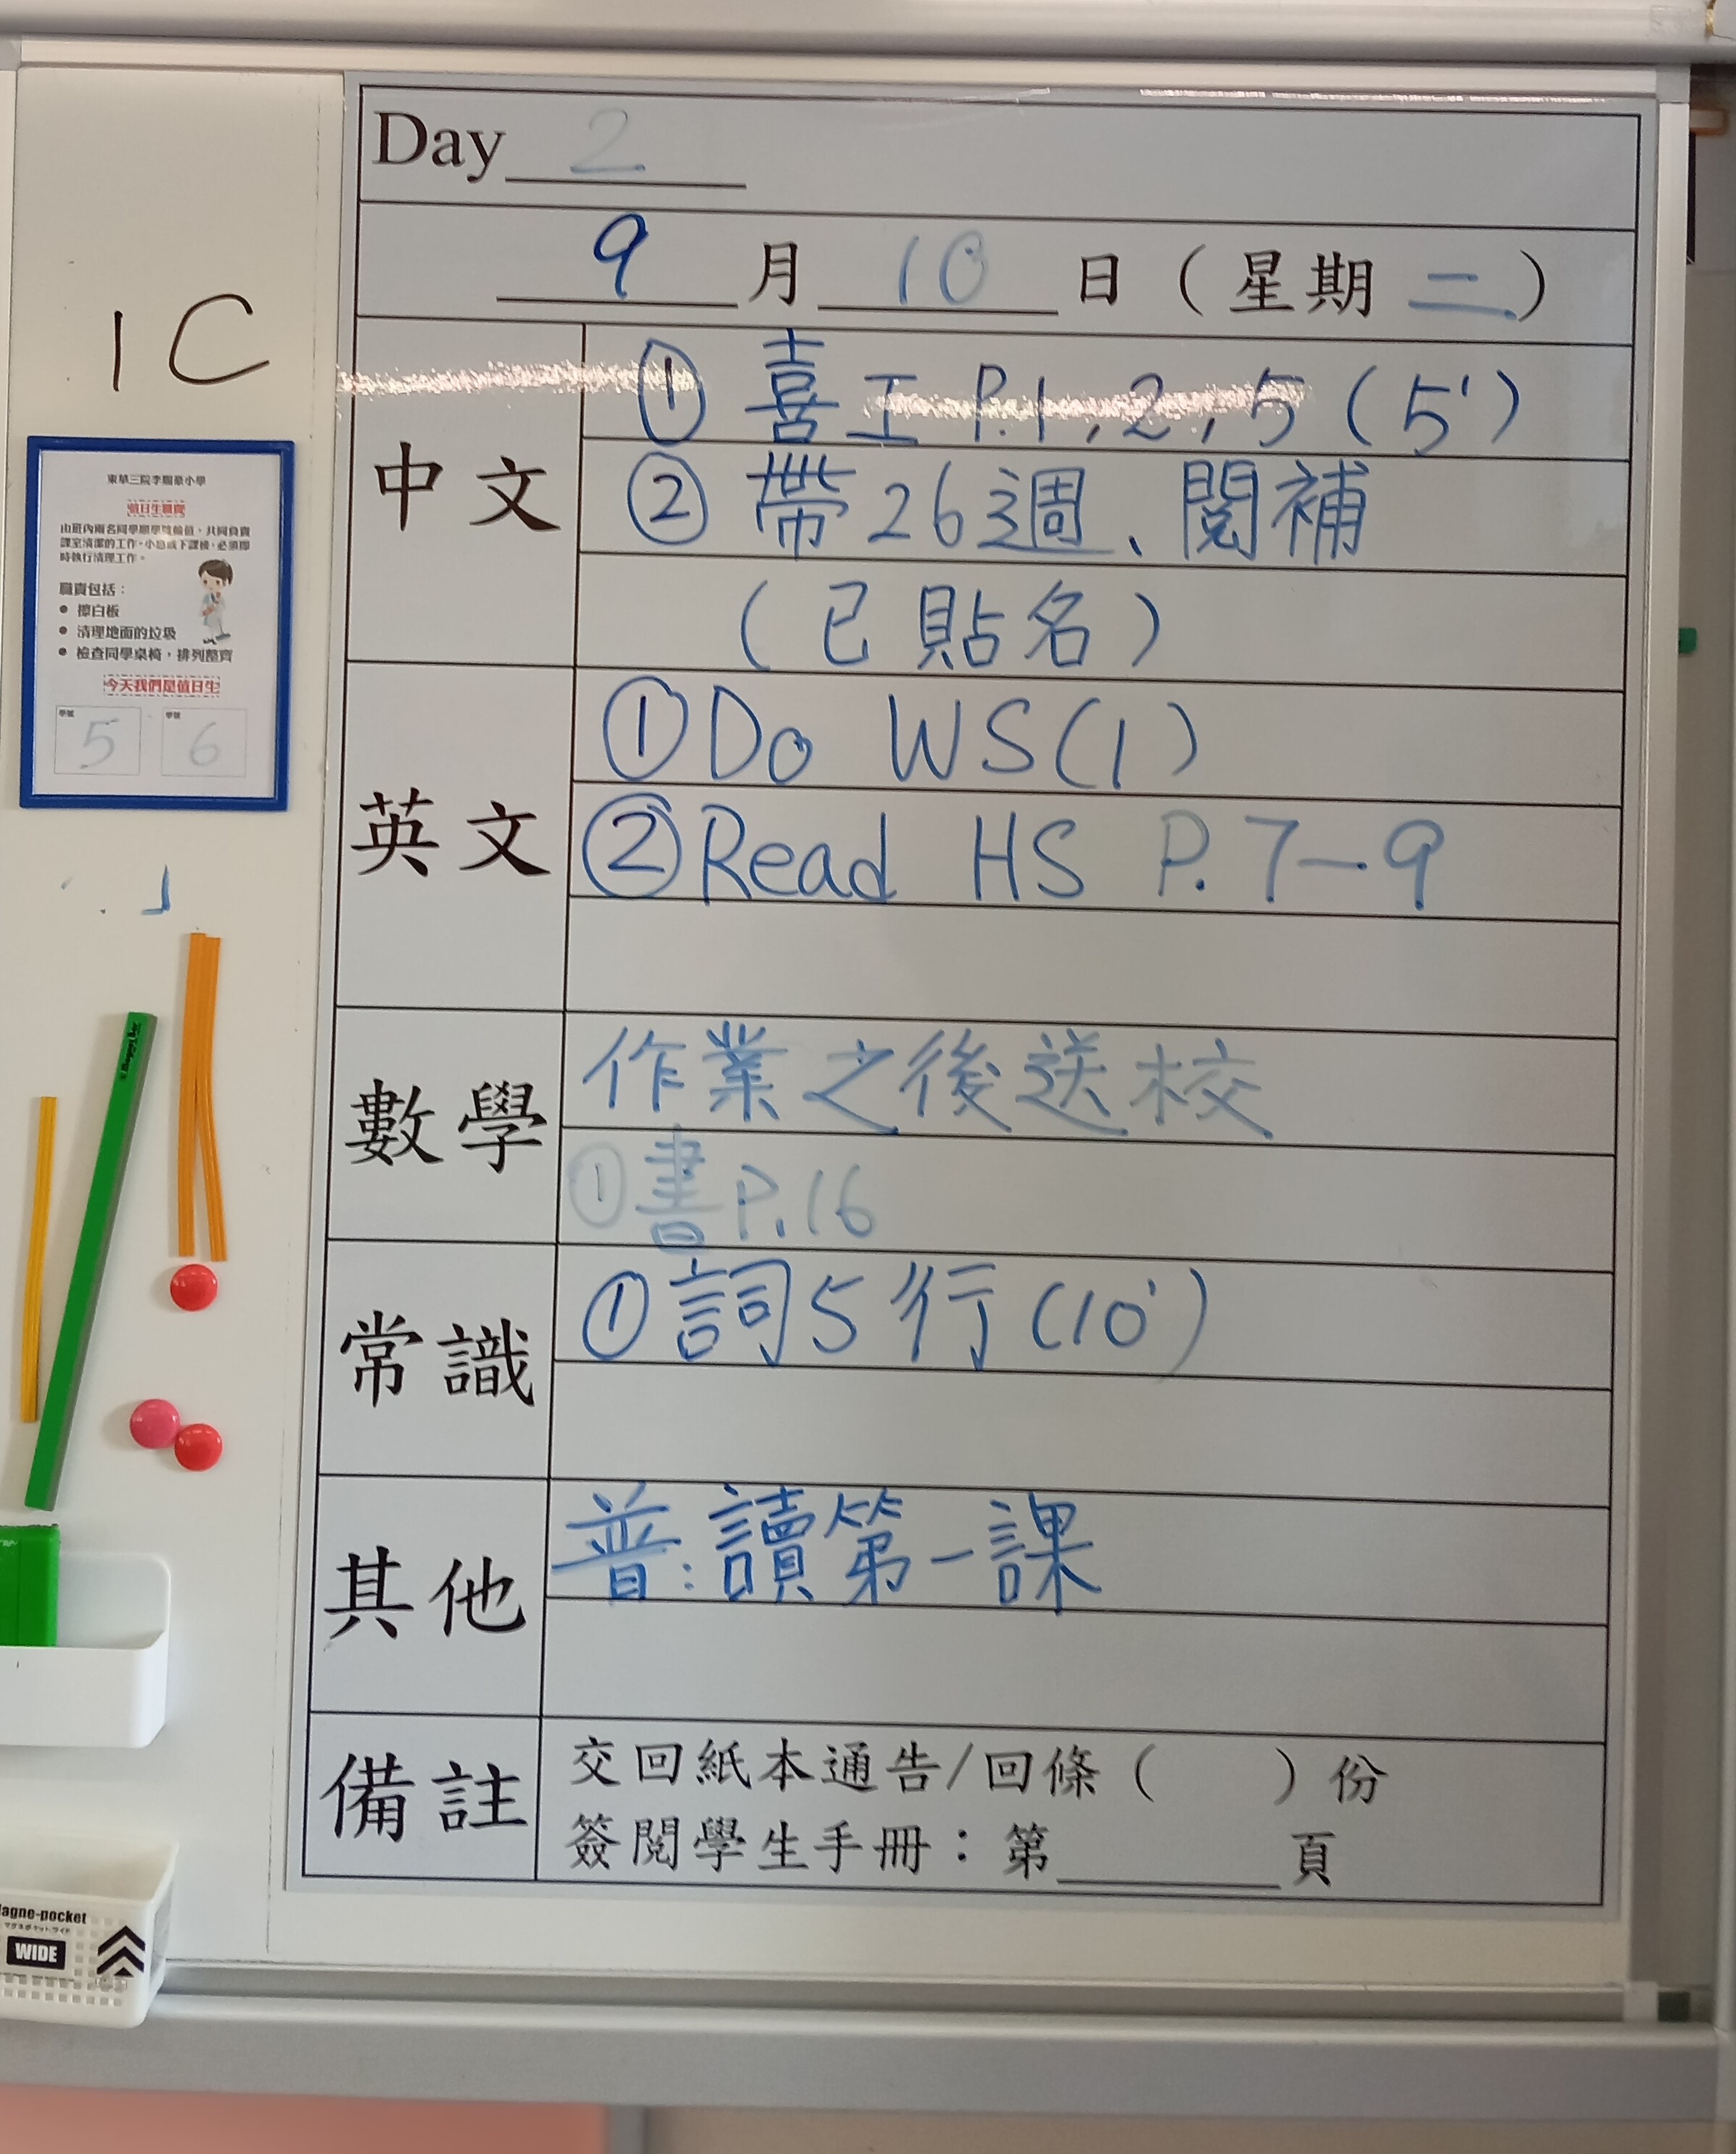 Day 2
9 月 10 日（星期 二）
1C
中文
① 喜工 P.1, 2, 5 (5')
② 帶26週、閱補
（已貼名）
英文
① Do WS(1)
② Read HS P.7-9
數學
作業之後送校
① 書P.16
常識
① 詞5行(10')
其他
普:讀第一課
備註
交回紙本通告/回條（ ）份
簽閱學生手冊：第______頁
值日生職責
由班內兩名同學順學號輪值，共同負責
課室清潔的工作，小息或下課後，必須即
時執行清理工作。
職責包括：
● 擦白板
● 清理地面的垃圾
● 檢查同學桌椅，排列整齊
今天我們是值日生
學號 5 學號 6
agne-pocket
WIDE